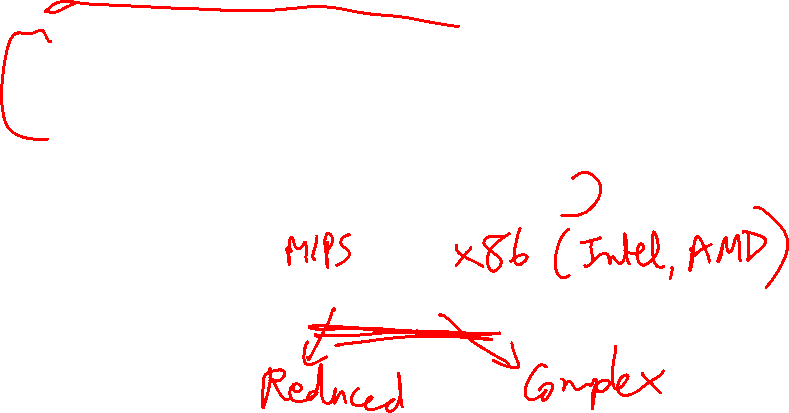 MIPS x86 (Intel, AMD)
Reduced Complex